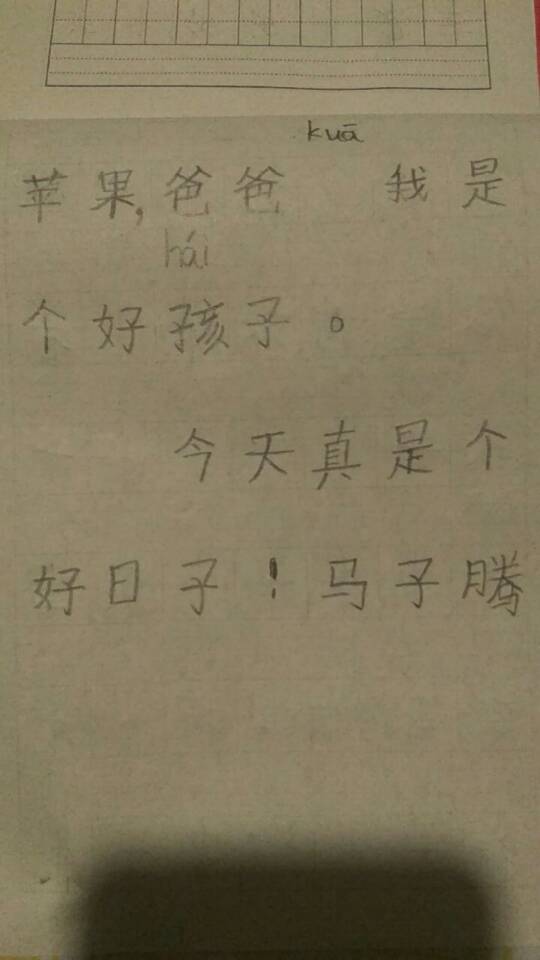 kuā
苹果,爸爸 我是
hái
个好孩子。
今天真是个
好日子！马子腾